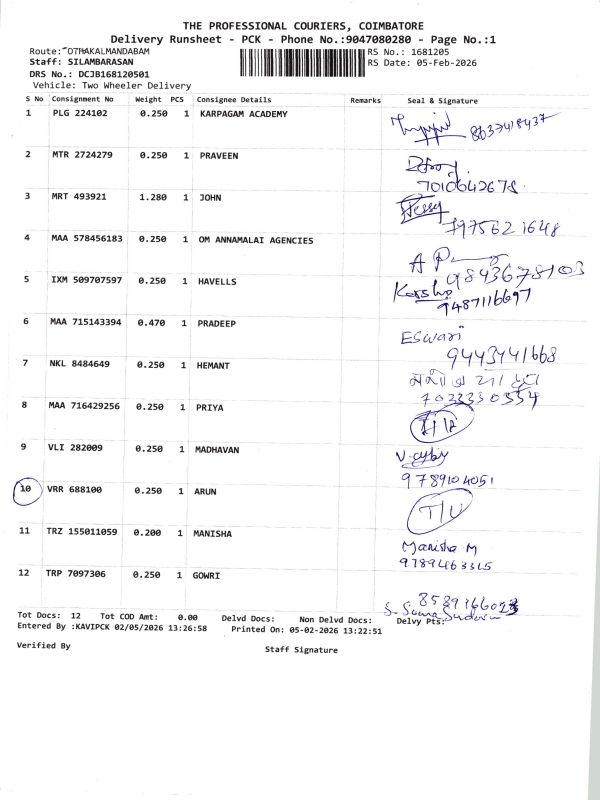 THE PROFESSIONAL COURIERS, COIMBATORE
Delivery Runsheet - PCK - Phone No.:9047080280 - Page No.:1
Route: OTHAKALMANDABAM
RS No.: 1681205
Staff: SILAMBARASAN
RS Date: 05-Feb-2026
DRS No.: DCJB168120501
Vehicle: Two Wheeler Delivery
S No Consignment No Weight PCS Consignee Details Remarks Seal & Signature
1 PLG 224102 0.250 1 KARPAGAM ACADEMY 8637418437
2 MTR 2724279 0.250 1 PRAVEEN
7010642678
3 MRT 493921 1.280 1 JOHN Jessy
7975621648
4 MAA 578456183 0.250 1 OM ANNAMALAI AGENCIES
9843678103
5 IXM 509707597 0.250 1 HAVELLS
9487116697
6 MAA 715143394 0.470 1 PRADEEP Eswari
9443741668
7 NKL 8484649 0.250 1 HEMANT
7022330554
8 MAA 716429256 0.250 1 PRIYA
9 VLI 282009 0.250 1 MADHAVAN
9789104051
10 VRR 688100 0.250 1 ARUN
11 TRZ 155011059 0.200 1 MANISHA Manisha M
9789463315
12 TRP 7097306 0.250 1 GOWRI
Tot Docs: 12 Tot COD Amt: 0.00 Delvd Docs: Non Delvd Docs: Delvy Pts:
Entered By :KAVIPCK 02/05/2026 13:26:58 Printed On: 05-02-2026 13:22:51
Verified By
Staff Signature